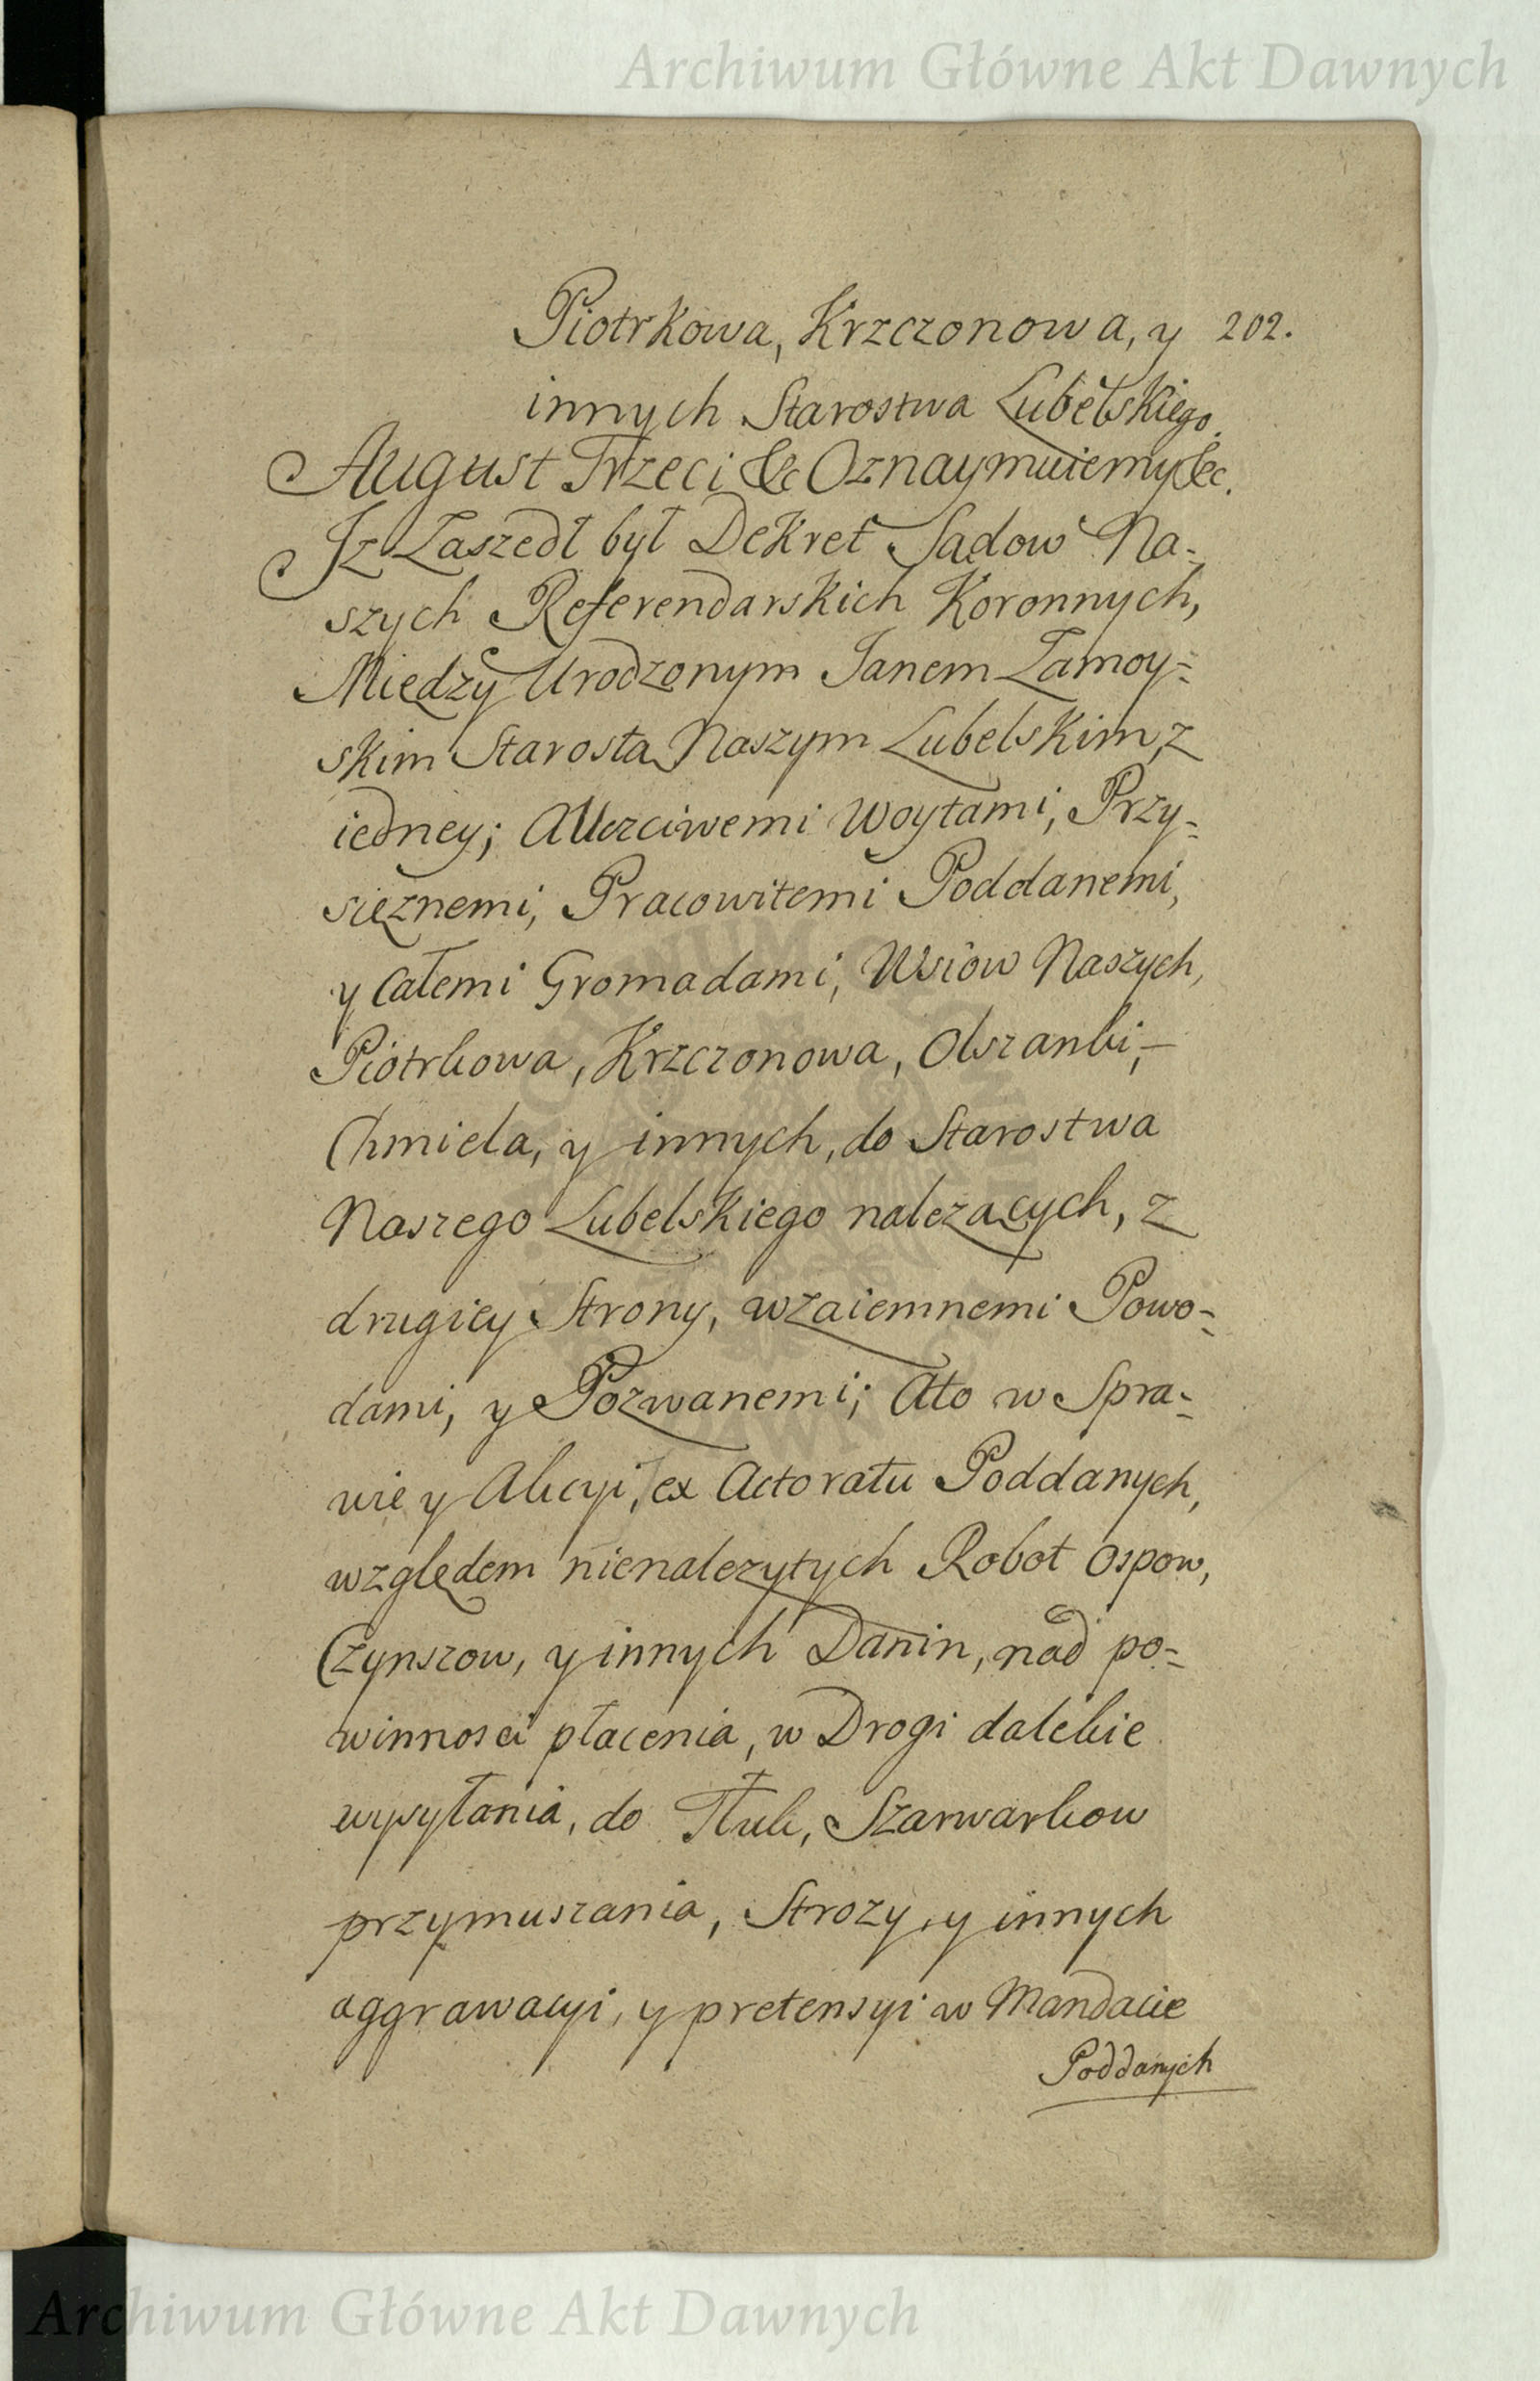 Archiwum Główne Akt Dawnych
Piotrkowa, Krzczonowa, y 202.
innych Starostwa Lubelskiego.
August Trzeci &c Oznaymuiemy &c.
Jz Zaszedł był Dekret Sądow Na-
szych Referendarskich Koronnych,
Między Urodzonym Janem Zamoy-
skim Starostą Naszym Lubelskim, z
iedney; A Uczciwemi Woytami, Przy-
sięznemi, Pracowitemi Poddanemi,
y Całemi Gromadami, Wsiow Naszych,
Piotrkowa, Krzczonowa, Olszanki,
Chmiela, y innych, do Starostwa
Naszego Lubelskiego nalezących, z
drugiey Strony, wzaiemnemi Powo-
dami, y Pozwanemi; Ato w Spra-
wie y Akcyi, ex Actoratu Poddanych,
względem nienalezytych Robot Ospow,
Czynszow, y innych Danin, nad po-
winnosci płacenia, w Drogi dalekie
wysyłania, do Tłuk, Szarwarkow
przymuszania, Strozy, y innych
aggrawacyi, y pretensyi w Mandacie
Poddanych
Archiwum Główne Akt Dawnych